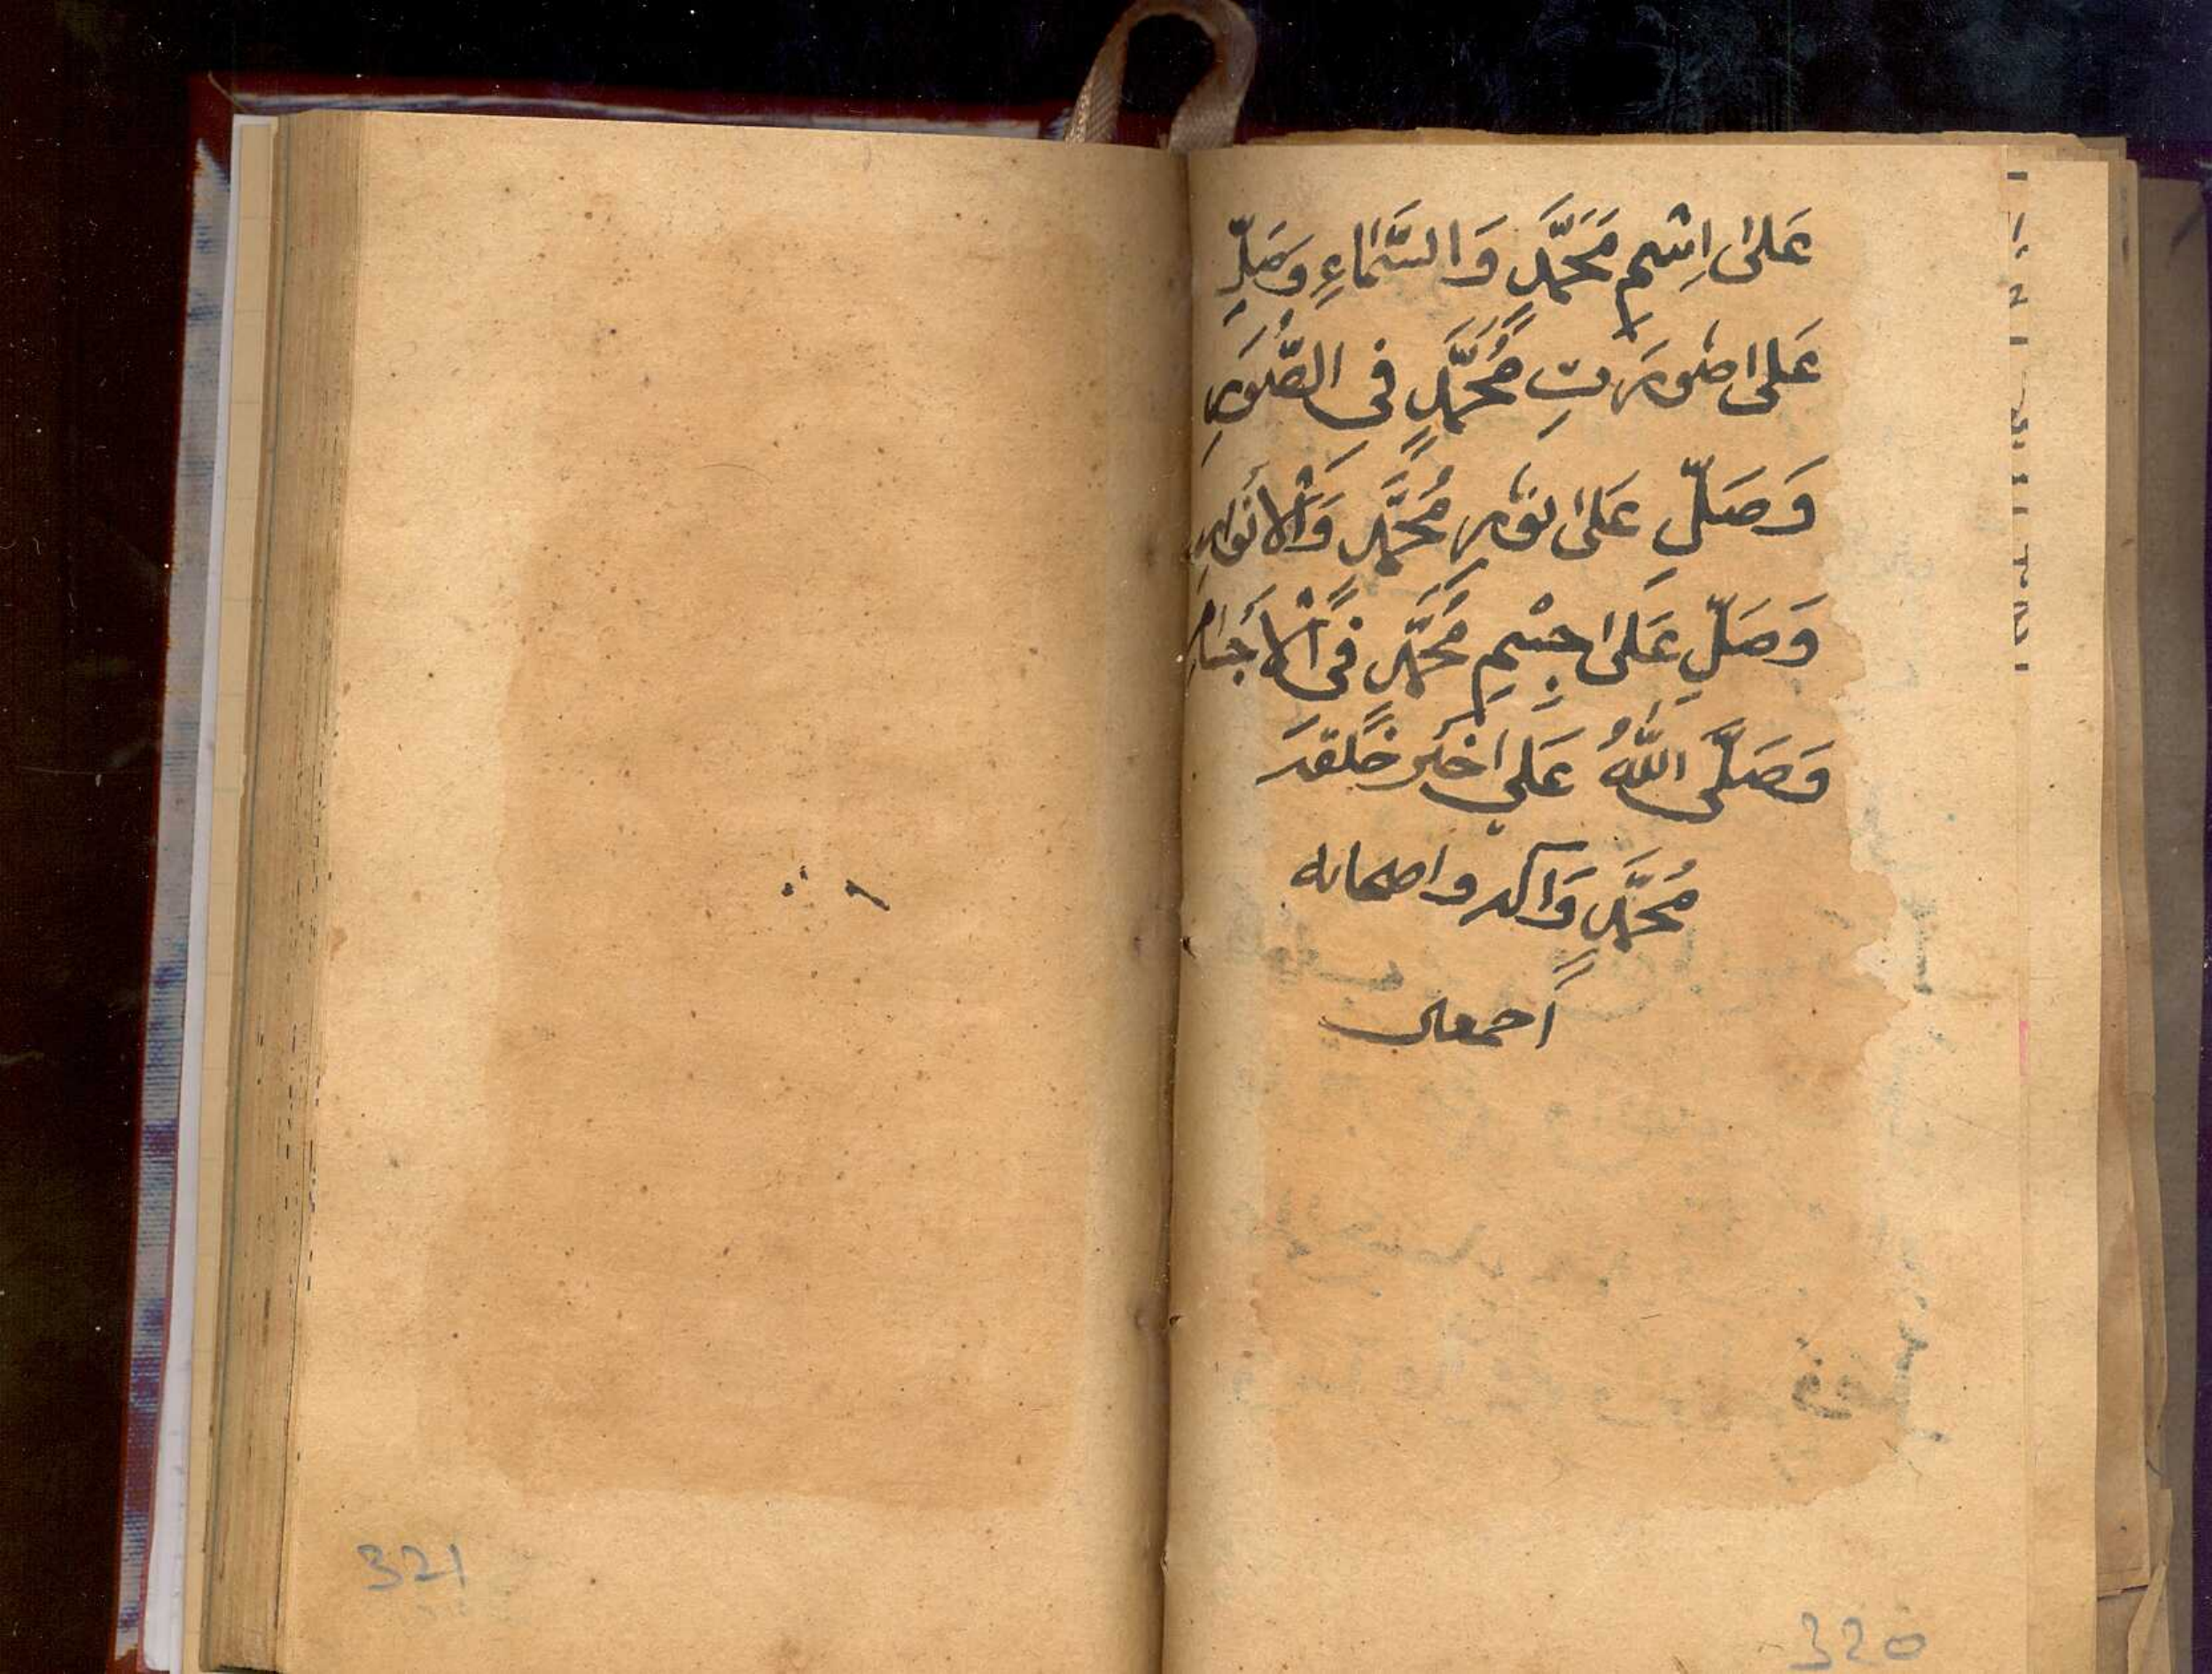 عَلیٰ اِسْمِ مَحَمَّدٍ وَالسَّمَاءِ وَصَلِّ
عَلیٰ صُورَتِ مُحَمَّدٍ فِی الصُّوَرِ
وَصَلِّ عَلیٰ نُوْرِ مُحَمَّدٍ وَالْاَنْوَارِ
وَصَلِّ عَلیٰ جِسْمِ مُحَمَّدٍ فِی الْاَجْسَامِ
وَصَلَّی اللّٰہُ عَلیٰ خَیْرِ خَلْقِہٖ
مُحَمَّدٍ وَاٰلِہٖ واصحابه
اجمعین
321
320